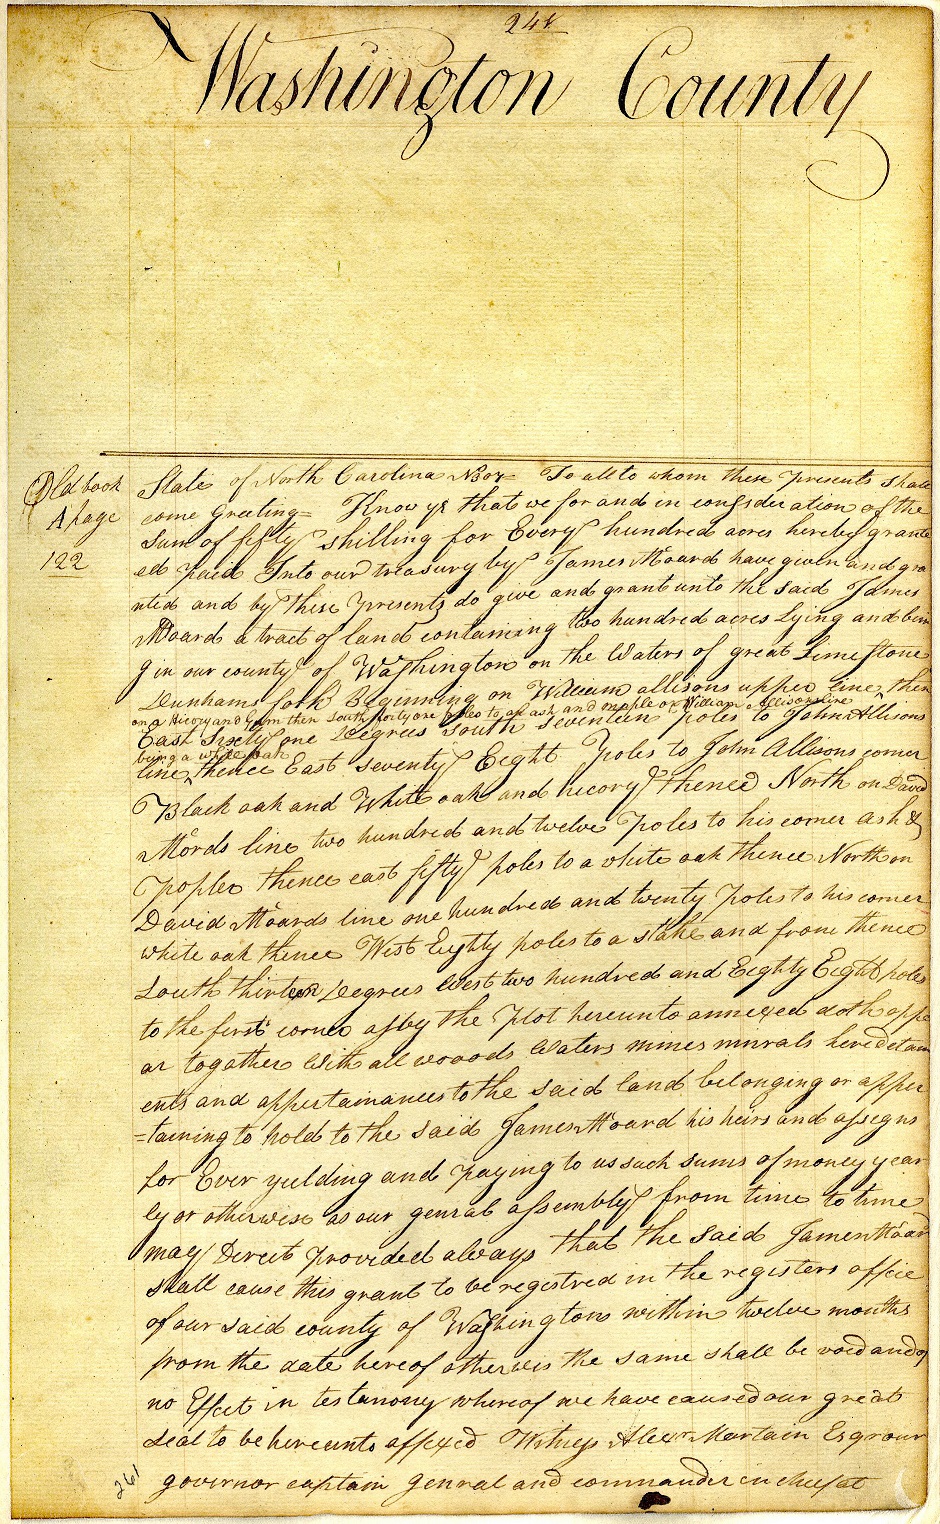 248
Washington County
Old book
A page
122
State of North Carolina No 307 To all to whom these presents shall
come Greeting= Know ye that we for and in consideration of the
Sum of fifty shilling for Every hundred acres hereby grant
ed paid Into our treasury by James Moard have given and gra
nted and by these presents do give and grant unto the said James
Moard a tract of land containing two hundred acres Lying and bein
g in our county of Washington on the Waters of great Limestone
Dunhams fork Beginning on William allisons upper line then
on a Hicory and Gum then South forty one poles to an ash and maple on William Allisons line
East Sixty one Degrees South seventeen poles to John Allisons
being a white oak
line, thence East seventy Eight poles to John Allisons corner
Black oak and White oak and hicory thence North on David
Mords line two hundred and twelve poles to his corner ash &
popler thence east fifty poles to a white oak thence North on
David Moards line one hundred and twenty poles to his corner
white oak thence West Eighty poles to a stake and from thence
South thirteen Degrees West two hundred and Eighty Eight poles
to the first corner as by the plot hereunto annexed doth appe
ar together With all wooods Waters mines minrals heredetam
ents and appertainances to the said land belonging or apper
=taining to hold to the said James Moard his heirs and assigns
for Ever yielding and paying to us such sums of money year
ly or otherwise as our genral assembly from time to time
may Direct provided always that the said James Moard
shall cause this grant to be registred in the registers office
of our said county of Washington within twelve months
from the date hereof otherwis the same shall be void and of
no Effect in testamony whereof we have caused our great
Seal to be hereunto affixed Witness Alexr Martain Esqr our
governor captain genral and commander in cheif at
261